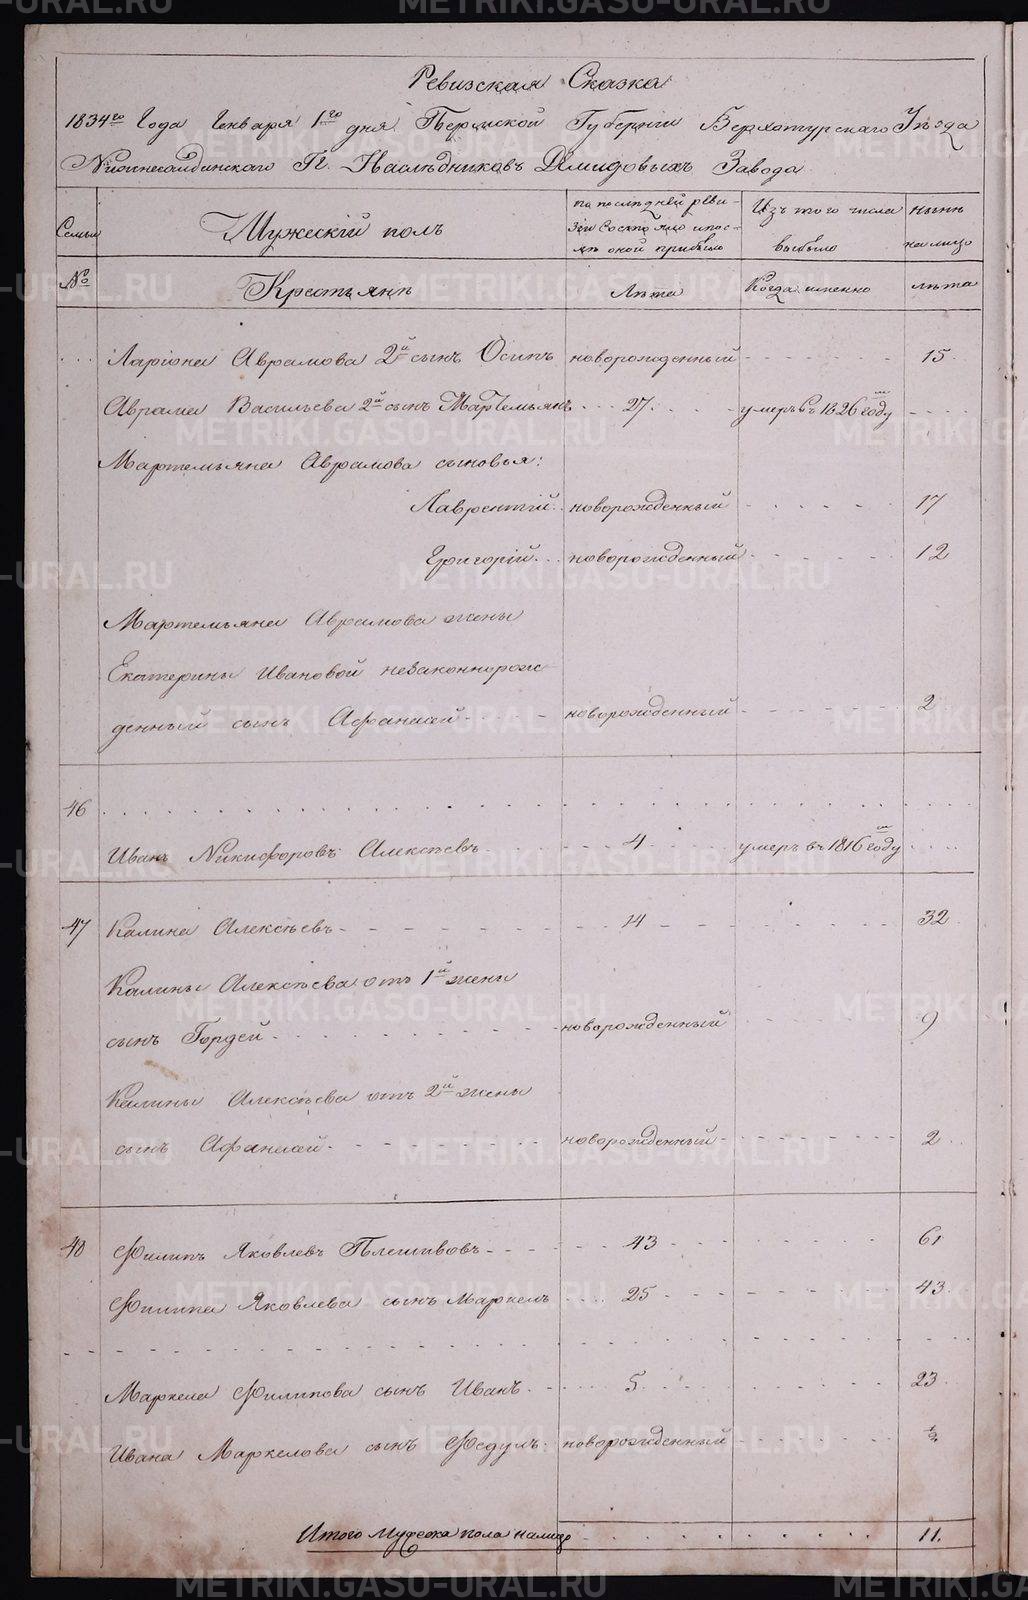 Ревизская Сказка
1834го Года Генваря 1го дня Пермской Губернiи Верхотурскаго Уѣзда
Нижнесалдинскаго Гг. Наслѣдниковъ Демидовыхъ Завода
Семьи Мужескiй полъ по послѣдней реви- Изъ того числа нынѣ
зiи состояло и пос- выбыло на лицо
лѣ оной прибыло
№ Крестьянѣ Лѣта Когда именно лѣта
Ларiона Аврамова 2й сынъ Осипъ новорожденный 15
Аврама Васильева 2й сынъ Мартемьянъ 27 умеръ въ 1826м году
Мартемьяна Аврамова сыновья:
Лаврентiй новорожденный 17
Григорiй новорожденный 12
Мартемьяна Аврамова жены
Екатерины Ивановой незаконнорож-
денный сынъ Афанасей новорожденный 2
46
Иванъ Никифоровъ Алексѣевъ 4 умеръ въ 1816м году
47 Калина Алексѣевъ 14 32
Калины Алексѣева отъ 1й жены
сынъ Гордей новорожденный 9
Калины Алексѣева отъ 2й жены
сынъ Афанасей новорожденный 2
48 Филипъ Яковлевъ Плешивовъ 43 61
Филипа Яковлева сынъ Маркелъ 25 43
Маркела Филипова сынъ Иванъ 5 23
Ивана Маркелова сынъ Федулъ новорожденный ½
Итого мужеска пола налицо 11.
METRIKI.GASO-URAL.RU